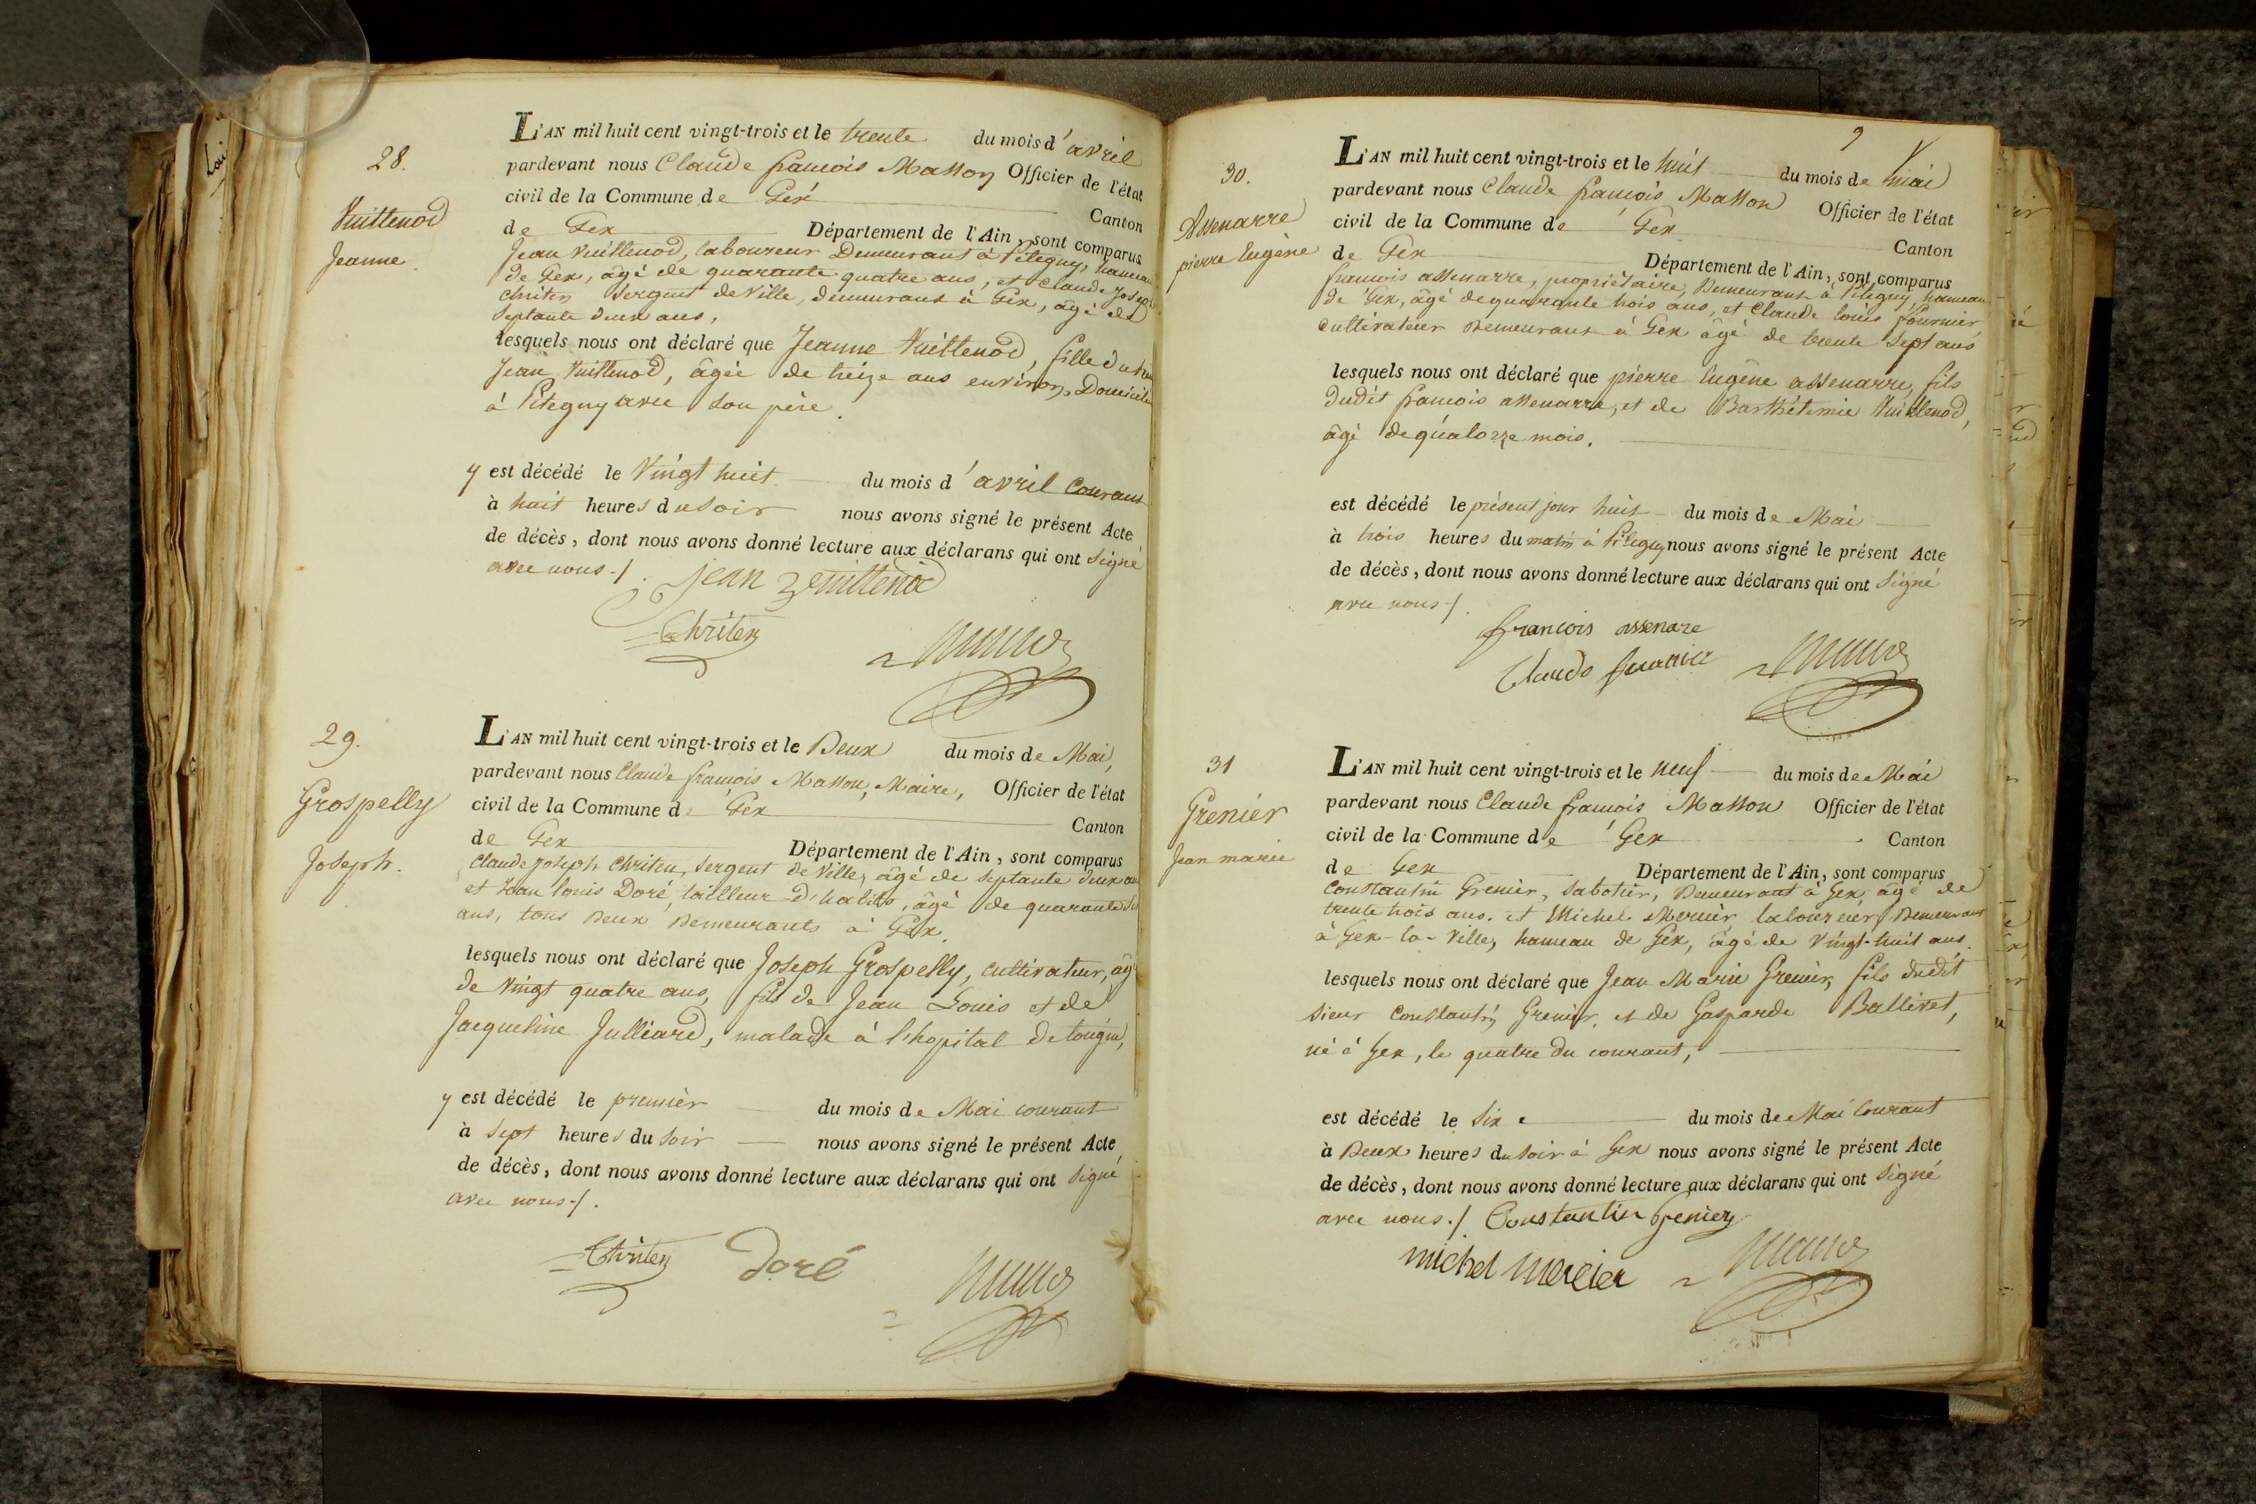 28.
Vuillenod
Jeanne.
L'AN mil huit cent vingt-trois et le trente du mois d'avril
pardevant nous Claude françois Masson Officier de l'état
civil de la Commune de Gex Canton
de Gex Département de l'Ain, sont comparus
Jean Vuillenod, laboureur Demeurant à Pitegny, hameau
de Gex, âgé de quarante quatre ans, et Claude Joseph
Chriten Sergent de Ville, demeurant à Gex, âgé de
Septante deux ans,
lesquels nous ont déclaré que Jeanne Vuillenod, fille dudit
Jean Vuillenod, âgée de treize ans environ, Domiciliée
à Pitegny avec son père.
y est décédé le Vingt huit du mois d'avril Courant
à huit heures du soir nous avons signé le présent Acte
de décès, dont nous avons donné lecture aux déclarans qui ont Signé
avec nous ./.
Jean Vuillenod
Chriten
29.
Grospelly
Joseph.
L'AN mil huit cent vingt-trois et le Deux du mois de Mai,
pardevant nous Claude françois Masson, Maire, Officier de l'état
civil de la Commune de Gex Canton
de Gex Département de l'Ain, sont comparus
Claude Joseph Chriten, Sergent de Ville, âgé de septante deux ans
et Jean Louis Doré, tailleur d'habits, âgé de quarante
ans, tous Deux Demeurants à Gex.
lesquels nous ont déclaré que Joseph Grospelly, cultivateur, âgé
de Vingt quatre ans, fils de Jean Louis et de
Jacqueline Julliard, malade à l'hopital de tougin,
y est décédé le premier du mois de Mai courant
à Sept heures du Soir nous avons signé le présent Acte
de décès, dont nous avons donné lecture aux déclarans qui ont Signé
avec nous ./.
Chriten Doré
9
30.
Assenarre
pierre Eugène
L'AN mil huit cent vingt-trois et le huit du mois de Mai
pardevant nous Claude françois Masson Officier de l'état
civil de la Commune de Gex Canton
de Gex Département de l'Ain, sont comparus
francois assenarre, propriétaire, Demeurant à Pitegny, hameau
de Gex, âgé de quarante trois ans, et Claude louis fournier
Cultivateur Demeurant à Gex âgé de trente Sept ans
lesquels nous ont déclaré que pierre Eugène assenarre, fils
dudit francois assenarre, et de Barthélemie Vuillenod,
âgé de quatorze mois.
est décédé le présent jour huit du mois de Mai
à trois heures du matin à Pitegny nous avons signé le présent Acte
de décès, dont nous avons donné lecture aux déclarans qui ont Signé
avec nous ./.
francois assenare
Claude fournier
31
Grenier
Jean marie
L'AN mil huit cent vingt-trois et le neuf du mois de Mai
pardevant nous Claude françois Masson Officier de l'état
civil de la Commune de Gex Canton
de Gex Département de l'Ain, sont comparus
Constantin Grenier, Sabotier, Demeurant à Gex, âgé de
trente trois ans. et Michel Mercier laboureur Demeurant
à Gex-la-Ville, hameau de Gex, âgé de Vingt-huit ans.
lesquels nous ont déclaré que Jean Marie Grenier, fils dudit
sieur Constantin Grenier, et de Gasparde Balliret,
né à Gex, le quatre du courant,
est décédé le Six du mois de Mai Courant
à Deux heures du soir à Gex nous avons signé le présent Acte
de décès, dont nous avons donné lecture aux déclarans qui ont Signé
avec nous ./. Constantin Grenier
michel mercier